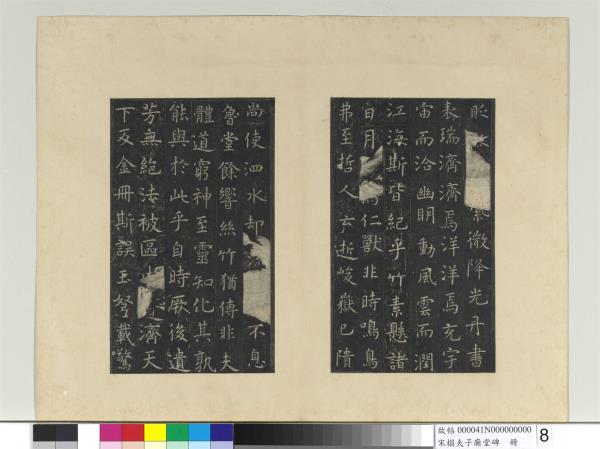 眎
紫微降光丹書
表瑞濟濟焉洋洋焉充宇
宙而洽幽明動風雲而潤
江海斯皆紀乎竹素懸諸
日月
仁獸非時鳴鳥
弗至哲人云逝峻嶽已隤
尚使泗水却
不息
魯堂餘響絲竹猶傳非夫
體道窮神至靈知化其孰
能與於此乎自時厥後遺
芳無絕法被區
濟天
下及金冊斯誤玉弩載驚
故帖 000041N000000000
宋榻夫子廟堂碑 冊
8